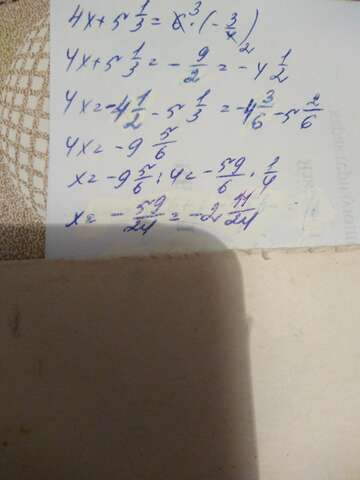 4x+5 1/3 = 6³·(-3/4)₂
4x+5 1/3 = -9/2 = -4 1/2
4x = -4 1/2 - 5 1/3 = -4 3/6 - 5 2/6
4x = -9 5/6
x = -9 5/6 : 4 = -59/6 · 1/4
x = -59/24 = -2 11/24